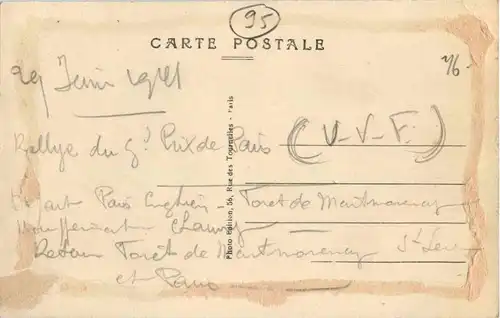 95
CARTE POSTALE
29 Juin 1941
76-
Rallye du Gd Prix de Paris (U-V-F.)
Départ Paris Enghien - Foret de Montmorency
Retour Foret de Montmorency St Leu
et Paris
Photo Edition, 56, Rue des Tournelles - Paris